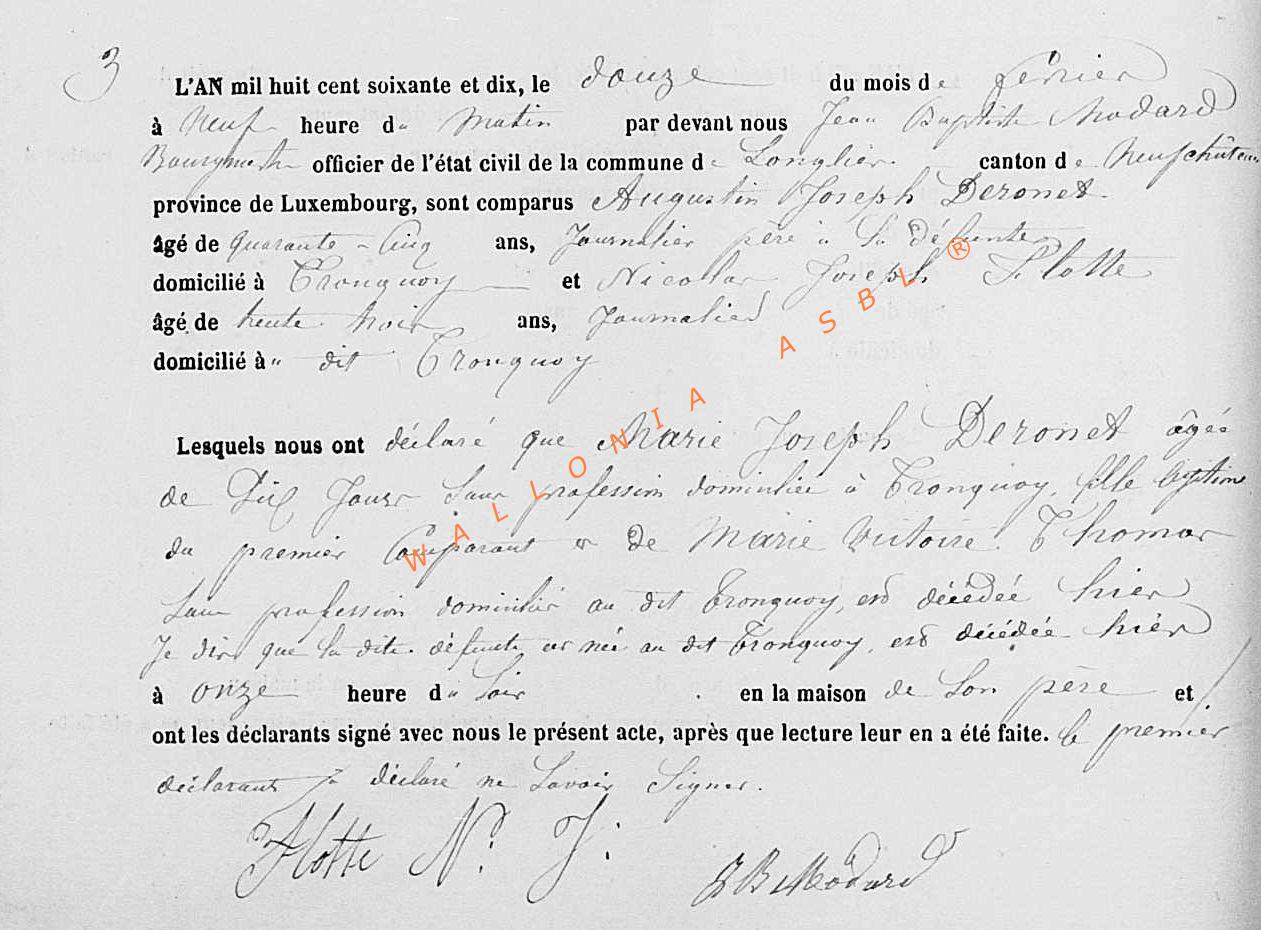 3
L'AN mil huit cent soixante et dix, le douze du mois de février
à Neuf heure du Matin par devant nous Jean Baptiste Modard
Bourgmestre officier de l'état civil de la commune de Longlier. canton de Neufchâteau
province de Luxembourg, sont comparus Augustin Joseph Deronet
âgé de quarante-Cinq ans, Journalier père à la défunte
domicilié à Tronquoy et Nicollas Joseph Flotte
âgé de trente trois ans, Journalier
domicilié à dit Tronquoy
Lesquels nous ont déclaré que Marie Joseph Deronet âgée
de Dix Jours Sans profession domiciliée à Tronquoy, fille légitime
du premier Comparant et de Marie Victoire Thomas
Sans profession domiciliés au dit Tronquoy, est décédée hier
Je dis que la dite défunte est née au dit Tronquoy, est décédée hier
à onze heure du Soir en la maison de Son père et
ont les déclarants signé avec nous le présent acte, après que lecture leur en a été faite. le premier
déclarant à déclaré ne Savoir Signer.
Flotte N. J. JB Modard
WALLONIA ASBL ®